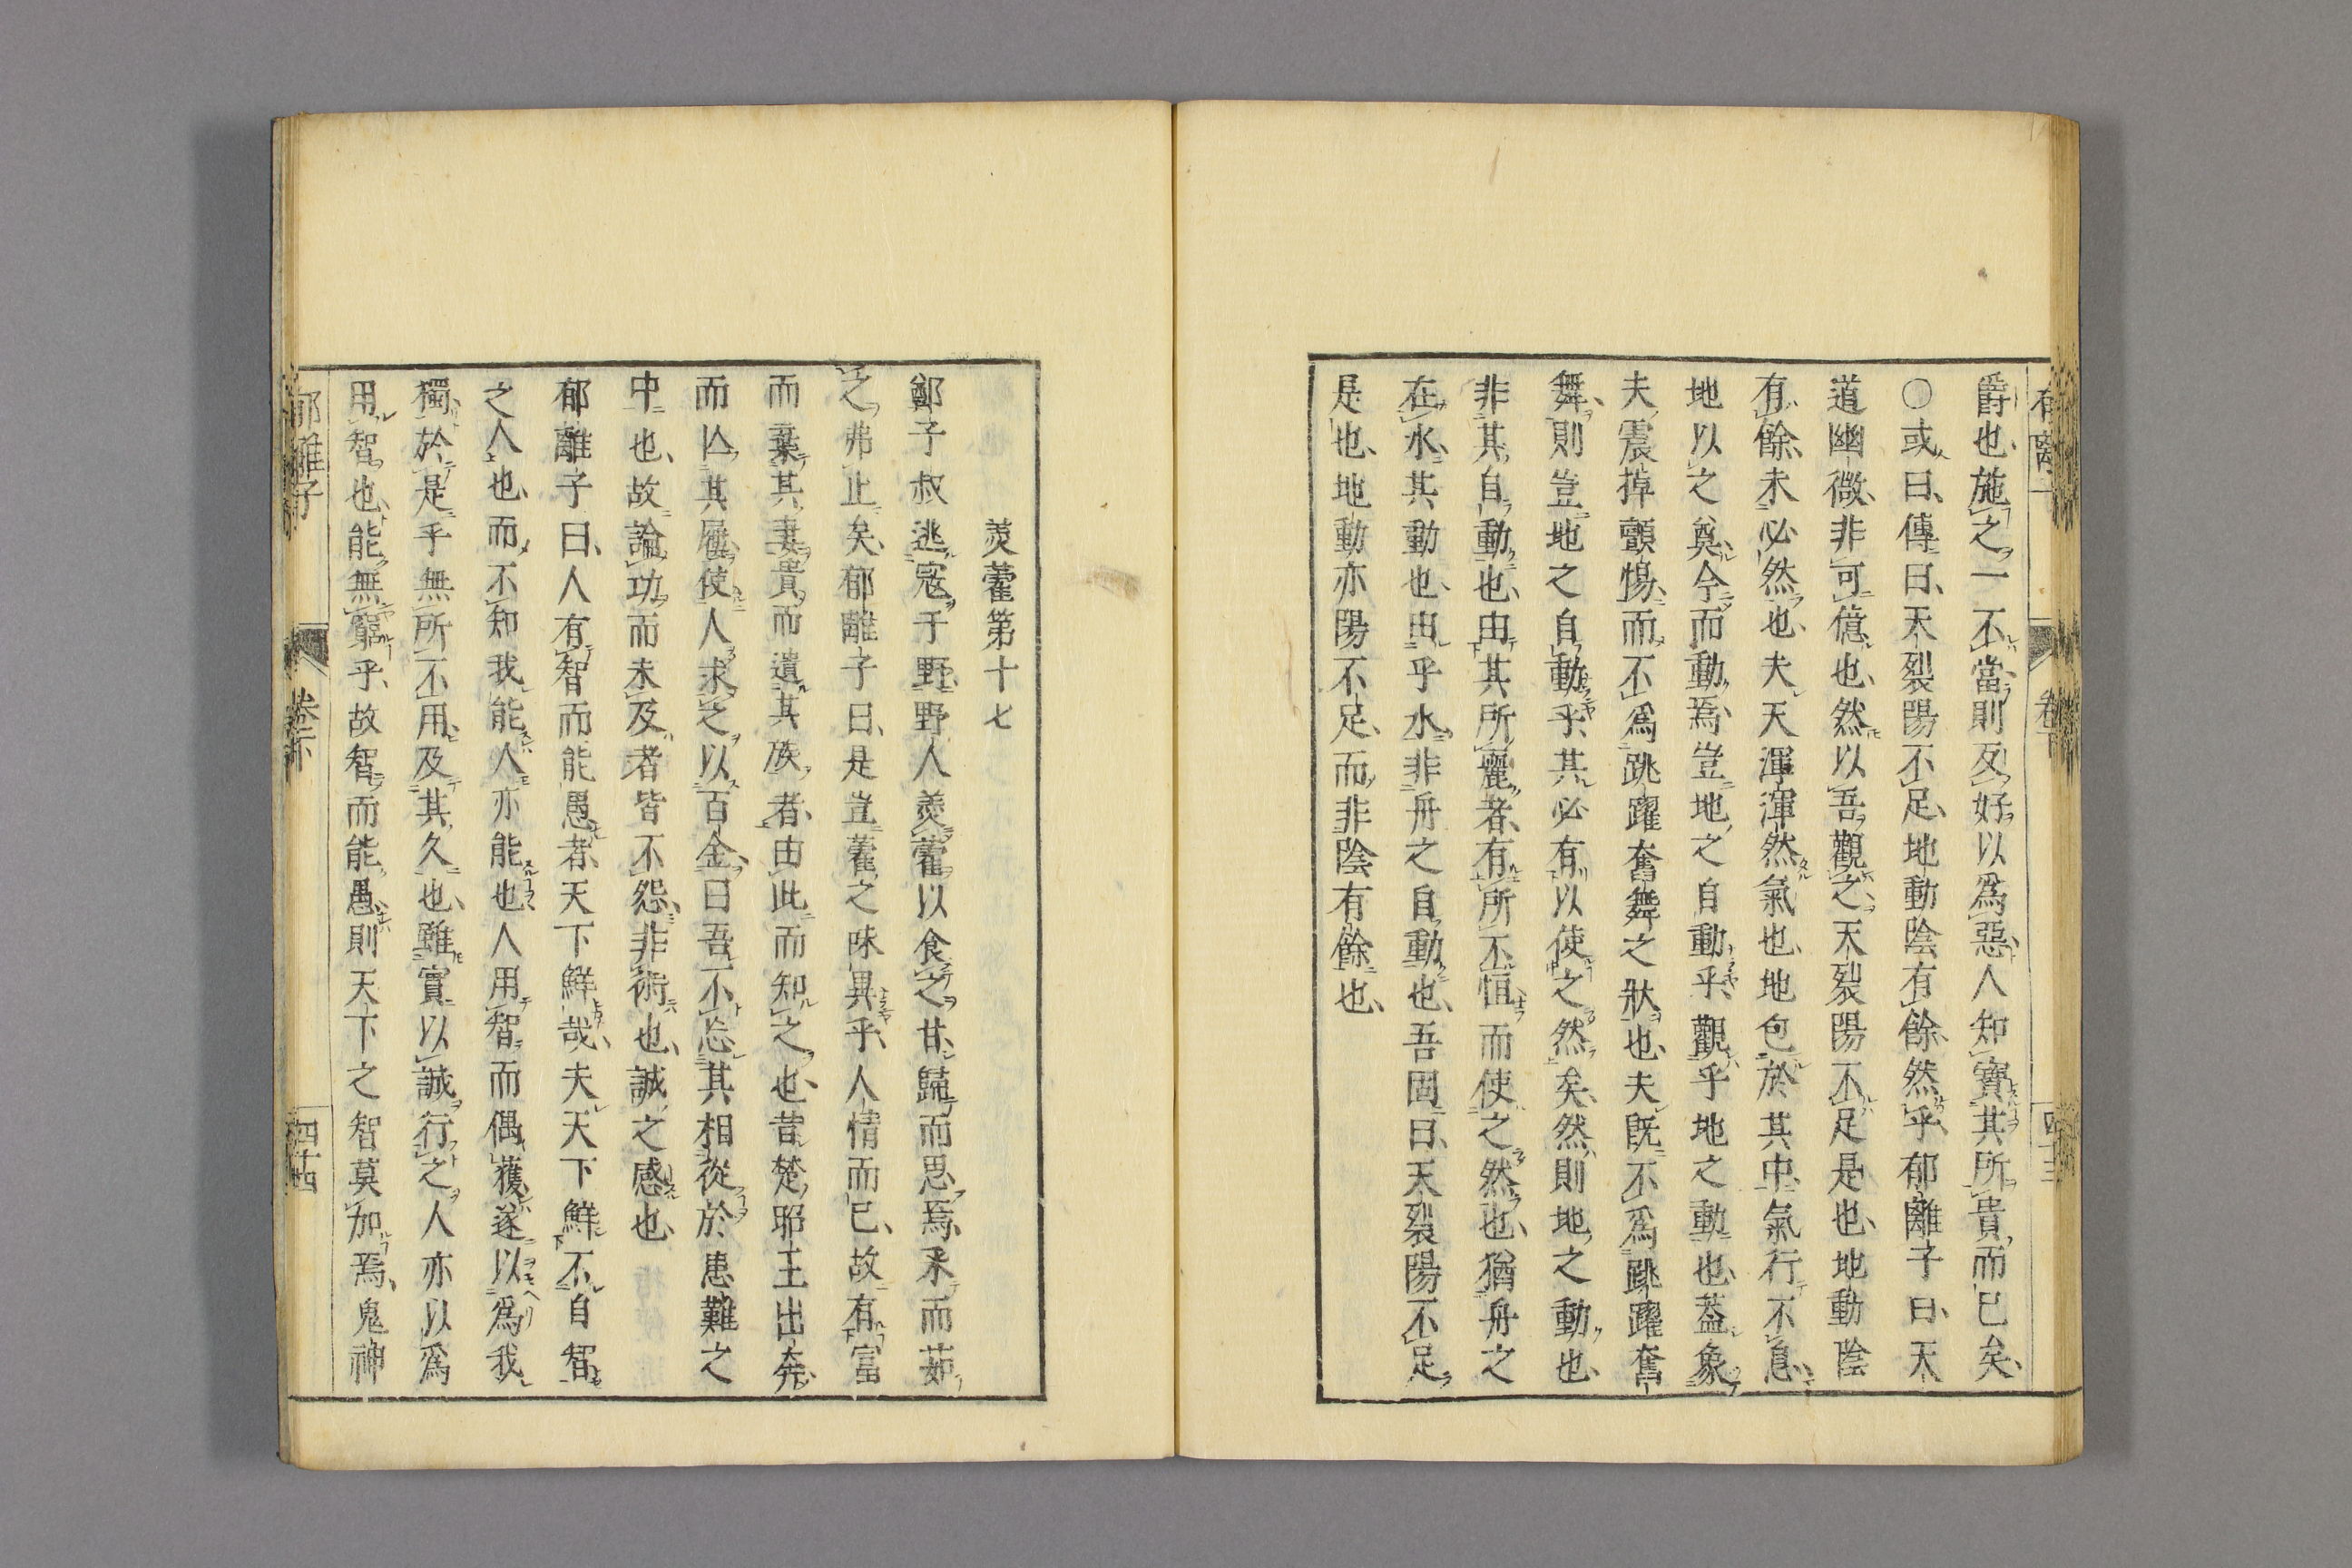 爵也、施之一不當則反好以爲惡、人知寶其所貴而已矣、
○或曰、傳曰、天裂陽不足、地動陰有餘、然乎、郁離子曰、天
道幽微、非可億也、然以吾觀之、天裂陽不足是也、地動陰
有餘、未必然也、夫天渾渾然氣也、地包於其中、氣行不息、
地以之奠、今而動焉、豈地之自動乎、觀乎地之動也、蓋象
夫震掉顫惕、而不爲跳躍奮舞之狀也、夫旣不爲跳躍奮
舞、則豈地之自動乎、其必有以使之然矣、然則地之動也、
非其自動也、由其所麗者、有所不恒、而使之然也、猶舟之
在水、其動也、由乎水、非舟之自動也、吾固曰、天裂陽不足
是也、地動亦陽不足、而非陰有餘也、
羹藿第十七
鄭子叔逃寇于野、野人羹藿以食之、甘、歸而思焉、采而茹
之、弗止矣、郁離子曰、是豈藿之味異乎、人情而已、故有富
而棄其妻、貴而遺其族者、由此而知之也、昔楚昭王出奔、
而亾其屨、使人求之以百金、曰吾不忘其相從於患難之
中也、故論功而未及者皆不怨、非術也、誠之感也、
郁離子曰、人有智而能愚者、天下鮮哉、夫天下鮮不自智
之人也、而不知我能人亦能也、人用智而偶獲、遂以爲我
獨、於是乎無所不用、及其久也、雖實以誠行之、人亦以爲
用智也、能無窮乎、故智而能愚、則天下之智莫加焉、鬼神
郁離子
卷下
四十四